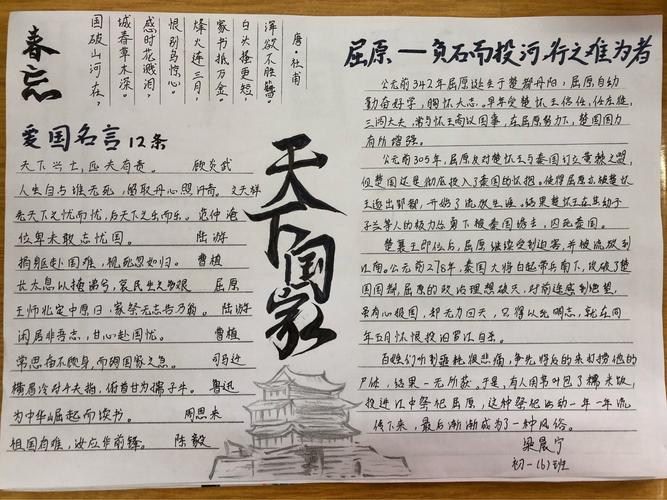 春忘
国破山河在，
城春草木深。
感时花溅泪，
恨别鸟惊心。
烽火连三月，
家书抵万金。
白头搔更短，
浑欲不胜簪。
唐·杜甫
爱国名言12条
天下兴亡，匹夫有责。 顾炎武
人生自古谁无死，留取丹心照汗青。文天祥
先天下之忧而忧，后天下之乐而乐。范仲淹
位卑未敢忘忧国。 陆游
捐躯赴国难，视死忽如归。 曹植
长太息以掩涕兮，哀民生之多艰 屈原
王师北定中原日，家祭无忘告乃翁。 陆游
闲居非吾志，甘心赴国忧。 曹植
常思奋不顾身，而殉国家之急。 司马迁
横眉冷对千夫指，俯首甘为孺子牛。 鲁迅
为中华崛起而读书。 周恩来
祖国有难，汝应作前锋。 陈毅
天下国家
屈原 — 负石而投河，行之难为者
公元前342年屈原诞生于楚都丹阳，屈原自幼
勤奋好学，胸怀大志。早年受楚怀王信任，任左徒，
三闾大夫，常与怀王商议国事，在屈原努力下，楚国国力
有所增强。
公元前305年，屈原反对楚怀王与秦国订立黄棘之盟，
但楚国还是彻底投入了秦国的怀抱。使得屈原亦被楚怀
王逐出郢都，开始了流放生涯。结果楚怀王在其幼子
子兰等人的极力怂恿下被秦国诱去，囚死秦国。
楚襄王即位后，屈原继续受到迫害，并被流放到
江南。公元前278年，秦国大将白起带兵南下，攻破了楚
国国都，屈原的政治理想破灭，对前途感到绝望，
虽有心报国，却无力回天，只得以死明志，就在同
年五月怀恨投汨罗江自杀。
百姓们听到噩耗很悲痛，争先恐后的来打捞他的
尸体，结果一无所获。于是，有人用苇叶包了糯米饭，
投进江中祭祀屈原，这种祭祀活动一年一年流
传下来，最后渐渐成为了一种风俗。
梁晨宁
初一（6）班